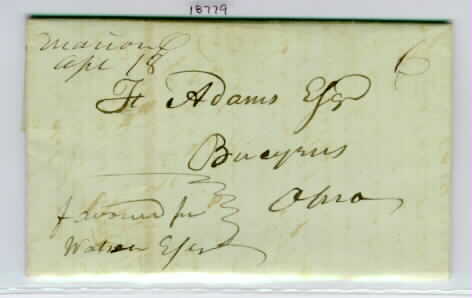 18779
Marion O
Apl 18
6
F Adams Esqr
Bucyrus
Ohio
favored pr
Watson Esqr